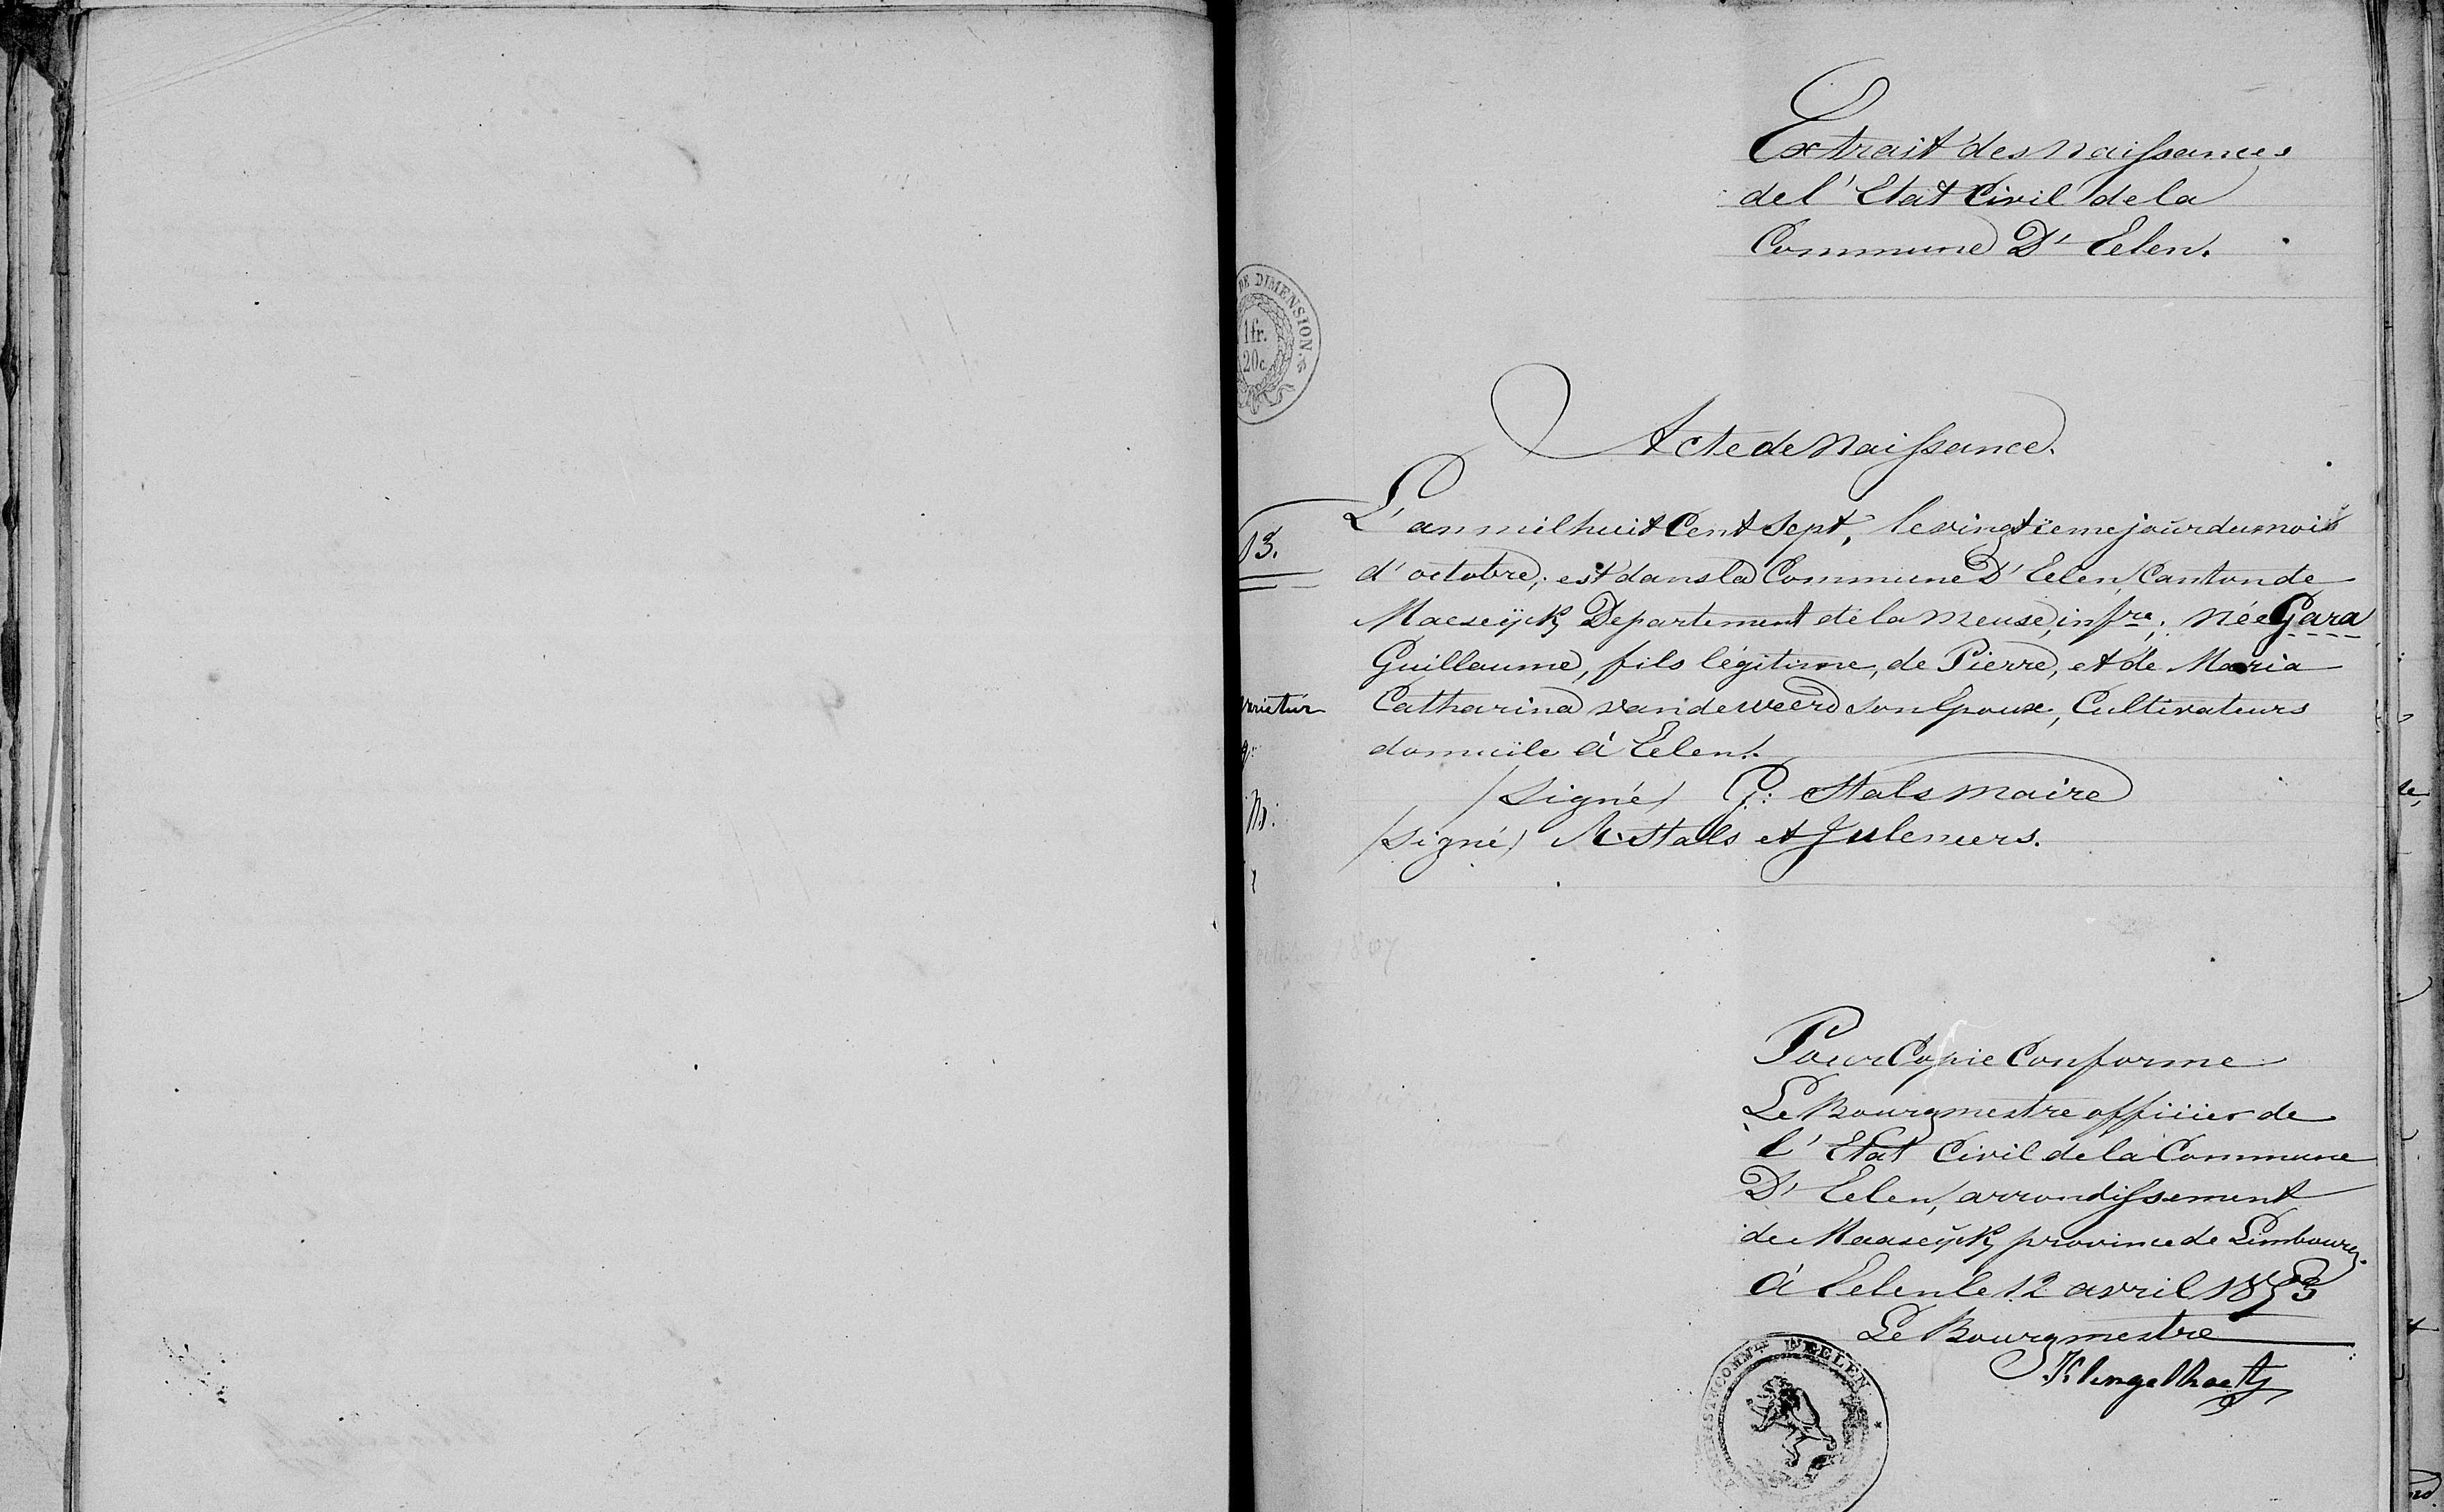 Extrait des naissances
de l'Etat Civil de la
Commune D'Eelen.
DE DIMENSION.
1fr.
20c
Acte de Naissance.
L'an mil huit Cent Sept, le vingtieme jour du mois
d'octobre, est dans la Commune D'Eelen, Canton de
Maeseÿck Departement de la meuse, infre; née Gara
Guillaume, fils légitime, de Pierre, et de Maria
Catharina van de weerd son Epouse, Cultivateurs
domicile à Eelen.
(Signé) G: Stals maire
(Signé) Stals et Julemers.
13.
varietur
Pour Copie Conforme
Le Bourgmestre officier de
l'Etat Civil de la Commune
D'Eelen, arrondissement
de Maaseÿck province de Limbourg.
à Eelen le 12 avril 1853
Le Bourgmestre
Klingelhoets
COMMle D'EELEN